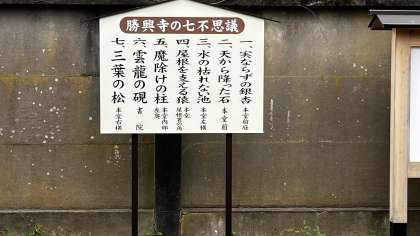 勝興寺の七不思議
一、実ならずの銀杏 本堂前庭
二、天から降った石 本堂前
三、水の枯れない池 本堂左横
四、屋根を支える猿 本堂屋根裏の隅
五、魔除けの柱 本堂内部
六、雲龍の硯 書院
七、三葉の松 本堂右横